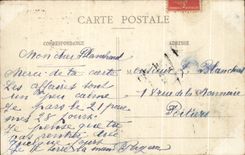 CARTE POSTALE
CORRESPONDANCE
ADRESSE
Mon cher Blanchard
Merci de ta carte
Les affaires sont
un peu calme
Je pars le 21 pour
mes 28 jours.
Je pense que tu
Quelque jours
Je te serre la main
Monsieur Blanchard
1 Rue de la Monnaie
Poitiers